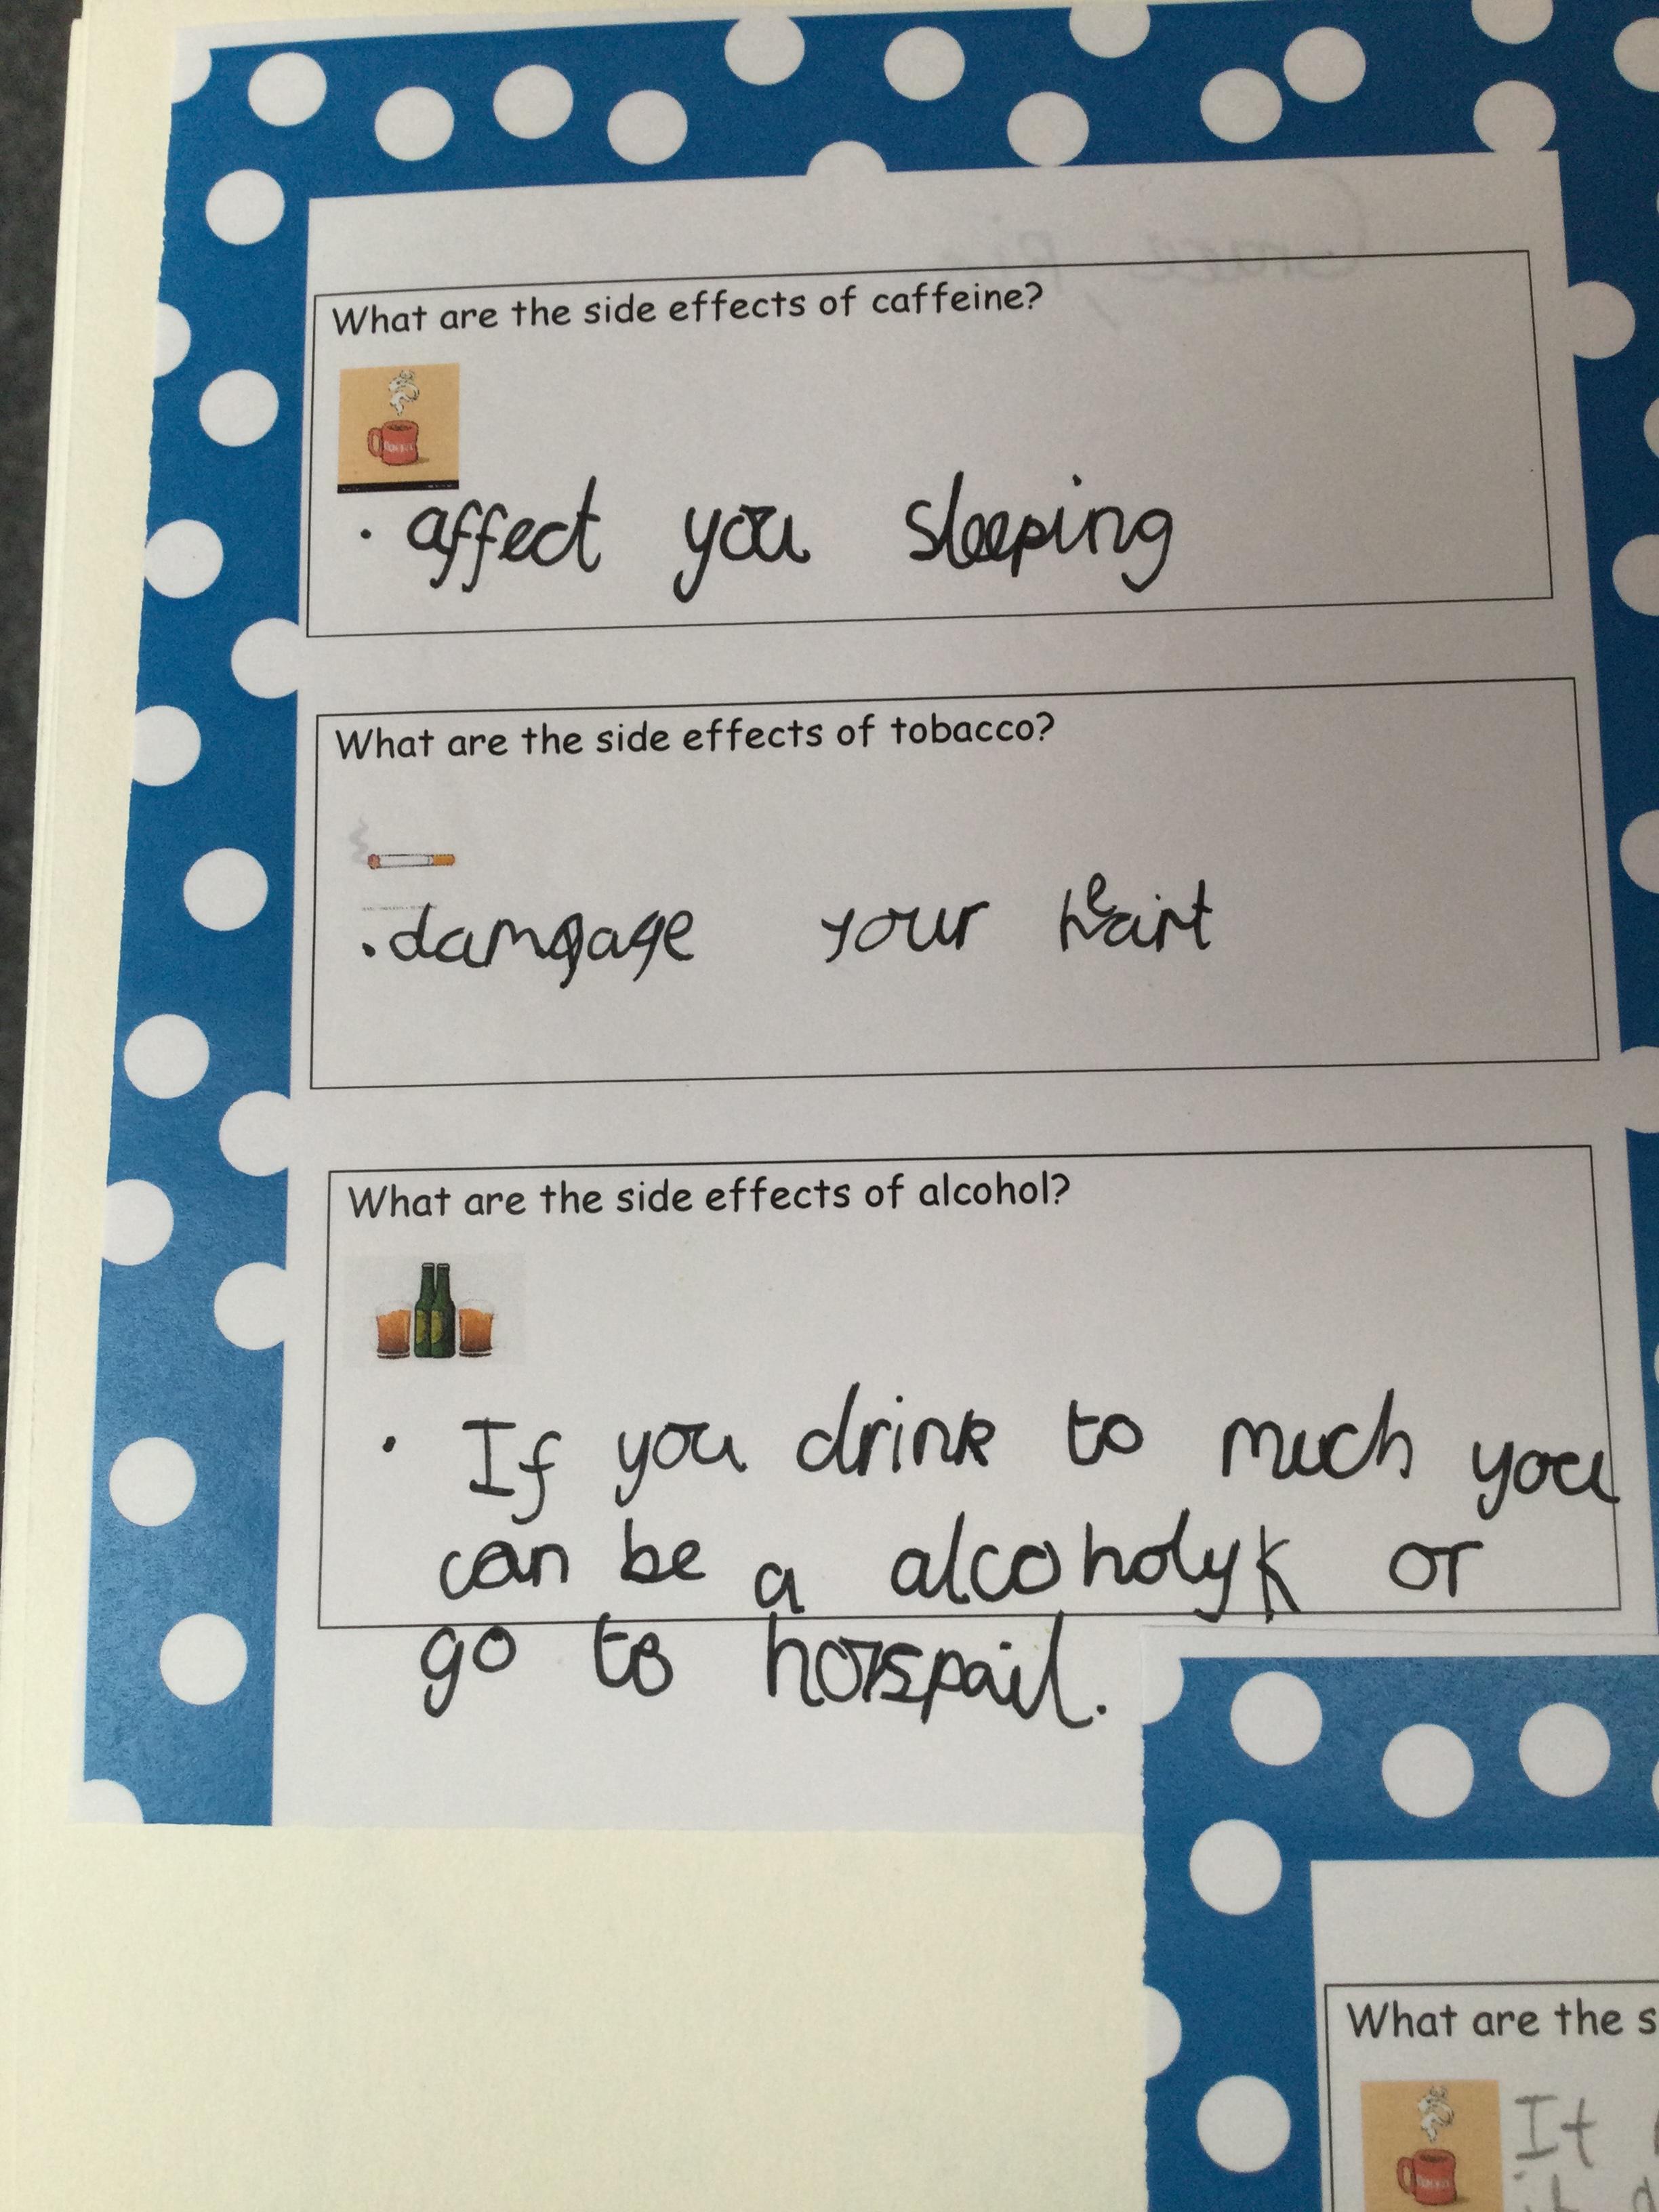 What are the side effects of caffeine?
• affect you sleeping
What are the side effects of tobacco?
• damgage your heart
What are the side effects of alcohol?
• If you drink to much you
can be a alcoholyk or
go to horspail.
What are the s
It
it